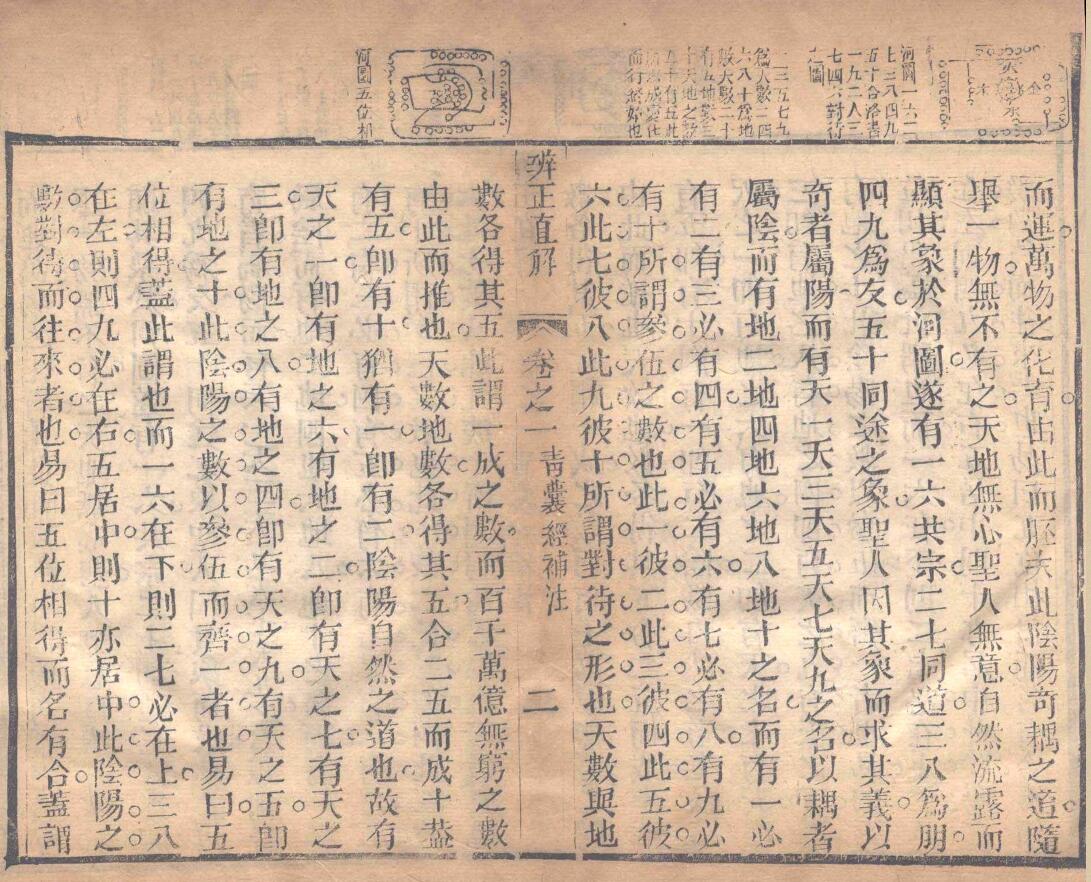 河圖一六二
七三八四九
五十合洛書
一九二八三
七四六對待
之圖
一三五七九
爲天數二四
六八十爲地
數天數二十
有五地數三
十天地之數
五十有五此
所以成變化
而行
河圖五位相
而運萬物之化育由此而胚夫此陰陽奇耦之道隨
舉一物無不有之天地無心聖人無意自然流露而
顯其象於河圖遂有一六共宗二七同道三八爲朋
四九爲友五十同途之象聖人因其象而求其義以
奇者屬陽而有天一天三天五天七天九之名以耦者
屬陰而有地二地四地六地八地十之名而有一必
有二有三必有四有五必有六有七必有八有九必
有十所謂參伍之數也此一彼二此三彼四此五彼
六此七彼八此九彼十所謂對待之形也天數與地
辨正直解 卷之一 青囊經補注 二
數各得其五此謂一成之數而百千萬億無窮之數
由此而推也天數地數各得其五合二五而成十葢
有五卽有十猶有一卽有二陰陽自然之道也故有
天之一卽有地之六有地之二卽有天之七有天之
三卽有地之八有地之四卽有天之九有天之五卽
有地之十此陰陽之數以參伍而齊一者也易曰五
位相得葢此謂也而一六在下則二七必在上三八
在左則四九必在右五居中則十亦居中此陰陽之
數對待而往來者也易曰五位相得而名有合葢謂